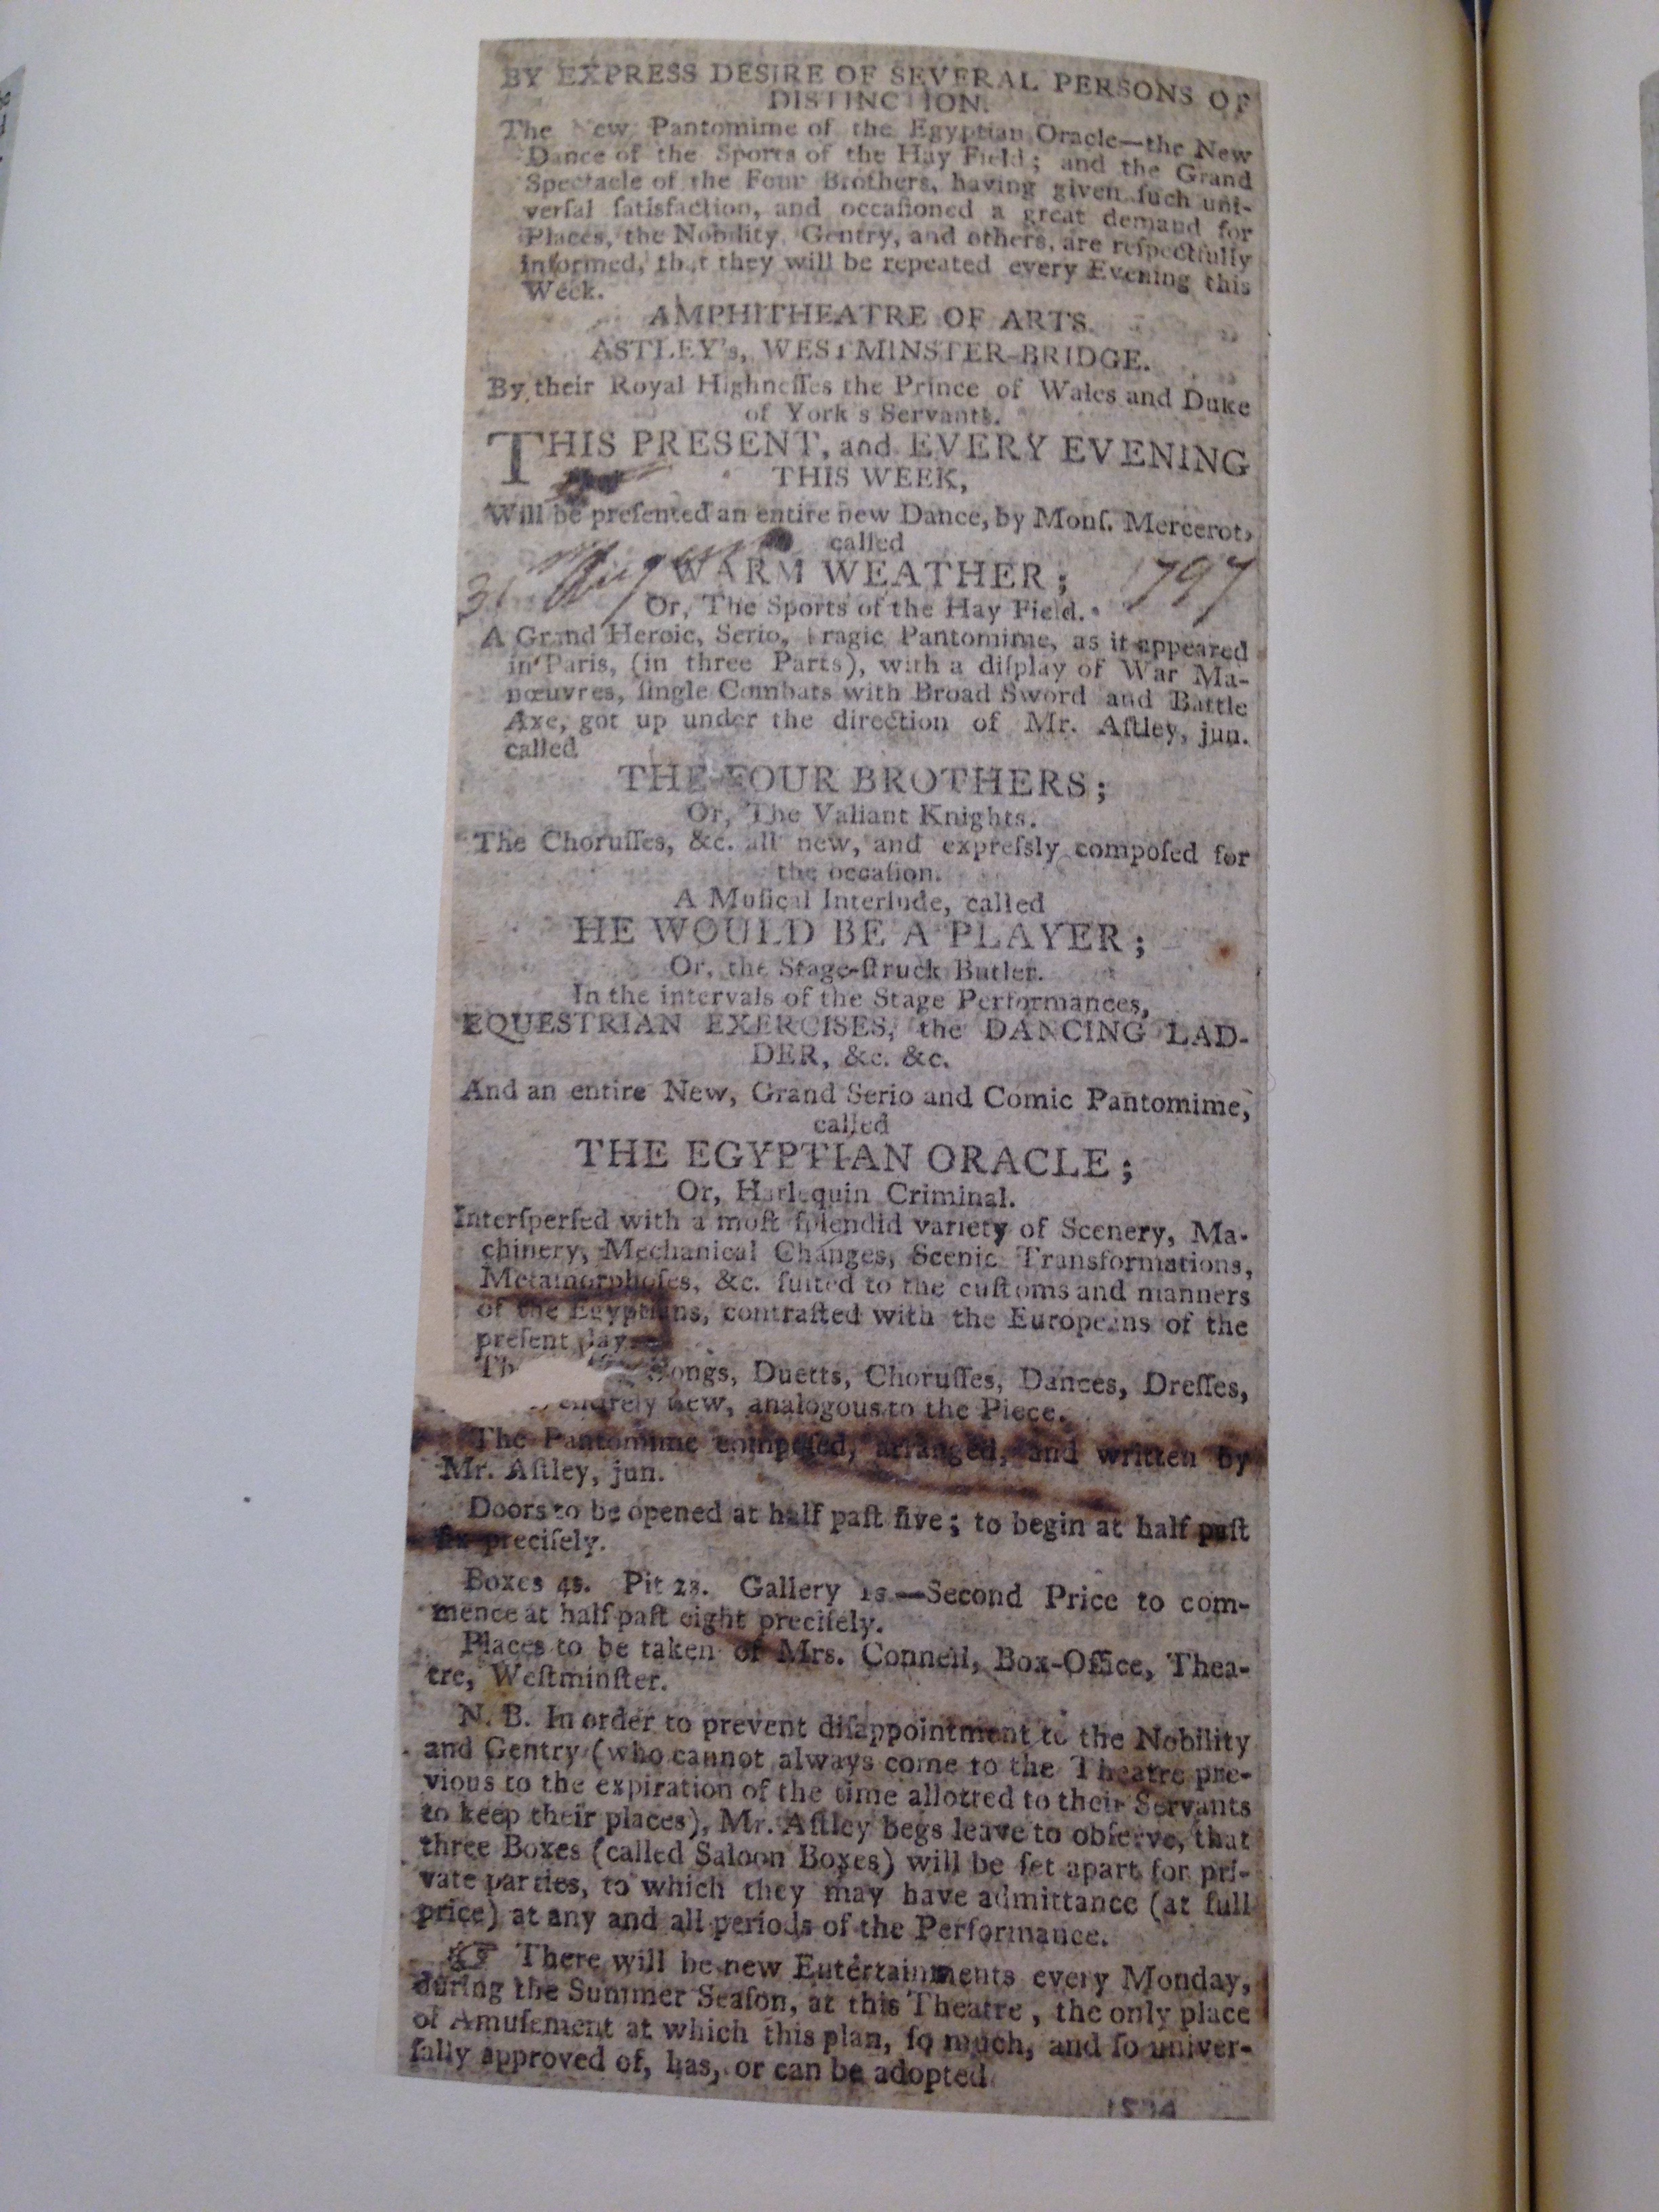 BY EXPRESS DESIRE OF SEVERAL PERSONS OF
DISTINCTION.
The New Pantomime of the Egyptian Oracle—the New
Dance of the Sports of the Hay Field; and the Grand
Spectacle of the Four Brothers, having given ſuch uni-
verſal ſatisfaction, and occaſioned a great demand for
Places, the Nobility, Gentry, and others, are reſpectfully
informed, that they will be repeated every Evening this
Week.
AMPHITHEATRE OF ARTS.
ASTLEY's, WESTMINSTER-BRIDGE.
By their Royal Highneſſes the Prince of Wales and Duke
of York's Servants.
THIS PRESENT, and EVERY EVENING
THIS WEEK,
Will be preſented an entire new Dance, by Monſ. Mercerot,
called
WARM WEATHER;
31 August 1797
Or, The Sports of the Hay Field.
A Grand Heroic, Serio, Tragic Pantomime, as it appeared
in Paris, (in three Parts), with a diſplay of War Ma-
nœuvres, ſingle Combats with Broad Sword and Battle
Axe, got up under the direction of Mr. Aſtley, jun.
called
THE FOUR BROTHERS;
Or, The Valiant Knights.
The Choruſſes, &c. all new, and expreſsly compoſed for
the occaſion.
A Muſical Interlude, called
HE WOULD BE A PLAYER;
Or, the Stage-ſtruck Butler.
In the intervals of the Stage Performances,
EQUESTRIAN EXERCISES, the DANCING LAD-
DER, &c. &c.
And an entire New, Grand Serio and Comic Pantomime,
called
THE EGYPTIAN ORACLE;
Or, Harlequin Criminal.
Interſperſed with a moſt ſplendid variety of Scenery, Ma-
chinery, Mechanical Changes, Scenic Transformations,
Metamorphoſes, &c. ſuited to the cuſtoms and manners
of the Egyptians, contraſted with the Europeans of the
preſent day.
Songs, Duetts, Choruſſes, Dances, Dreſſes,
entirely new, analogous to the Piece.
The Pantomime compoſed, arranged, and written by
Mr. Aſtley, jun.
Doors to be opened at half paſt five; to begin at half paſt
ſix preciſely.
Boxes 4s. Pit 2s. Gallery 1s.—Second Price to com-
mence at half paſt eight preciſely.
Places to be taken of Mrs. Connell, Box-Office, Thea-
tre, Weſtminſter.
N. B. In order to prevent diſappointment to the Nobility
and Gentry (who cannot always come to the Theatre pre-
vious to the expiration of the time allotted to their Servants
to keep their places), Mr. Aſtley begs leave to obſerve, that
three Boxes (called Saloon Boxes) will be ſet apart for pri-
vate parties, to which they may have admittance (at full
price) at any and all periods of the Performance.
☞ There will be new Entertainments every Monday,
during the Summer Seaſon, at this Theatre, the only place
of Amuſement at which this plan, ſo much, and ſo univer-
ſally approved of, has, or can be adopted